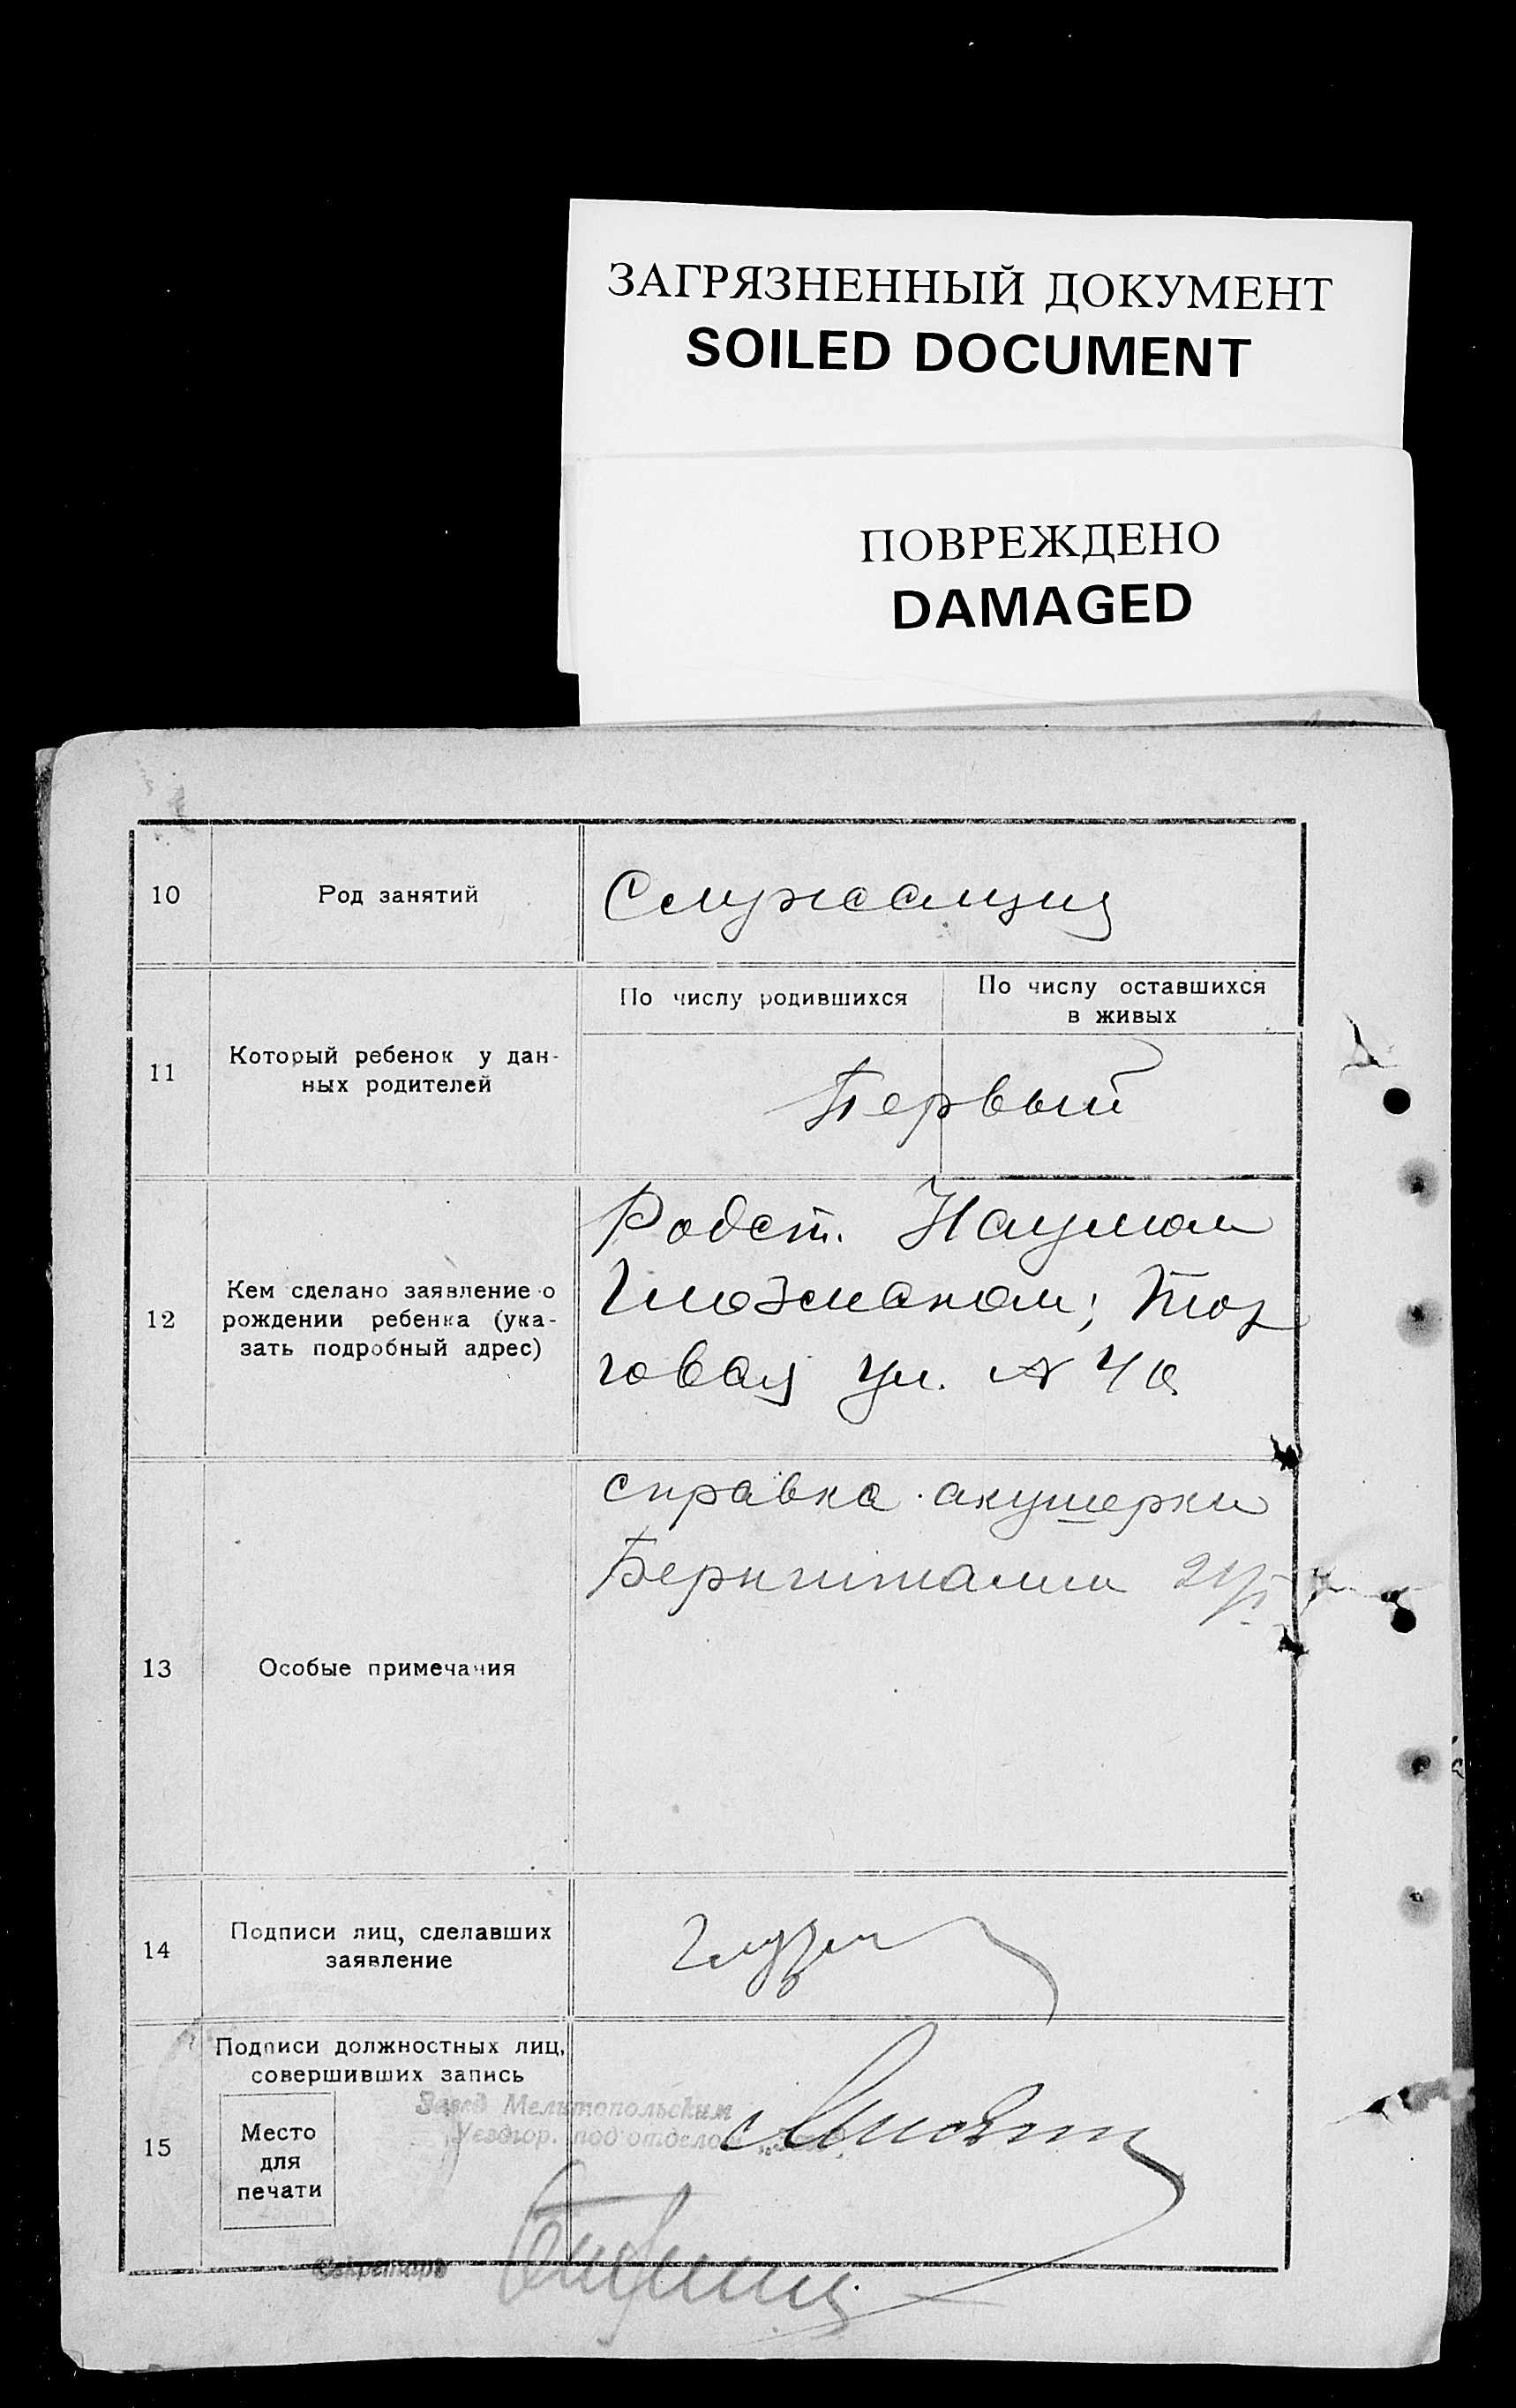 ЗАГРЯЗНЕННЫЙ ДОКУМЕНТ
SOILED DOCUMENT
ПОВРЕЖДЕНО
DAMAGED
10
Род занятий
Служащий
11
Который ребенок у дан-
ных родителей
По числу родившихся
По числу оставшихся
в живых
Первый
12
Кем сделано заявление о
рождении ребенка (ука-
зать подробный адрес)
Родст. Наумом
Глозманом; Тор
говая ул. №
13
Особые примечания
справка акушерки
Бернштам
14
Подписи лиц, сделавших
заявление
15
Подписи должностных лиц,
совершивших запись
Место
для
печати
Завед Мелитопольским
Уездгор. под отделом
Секретарь